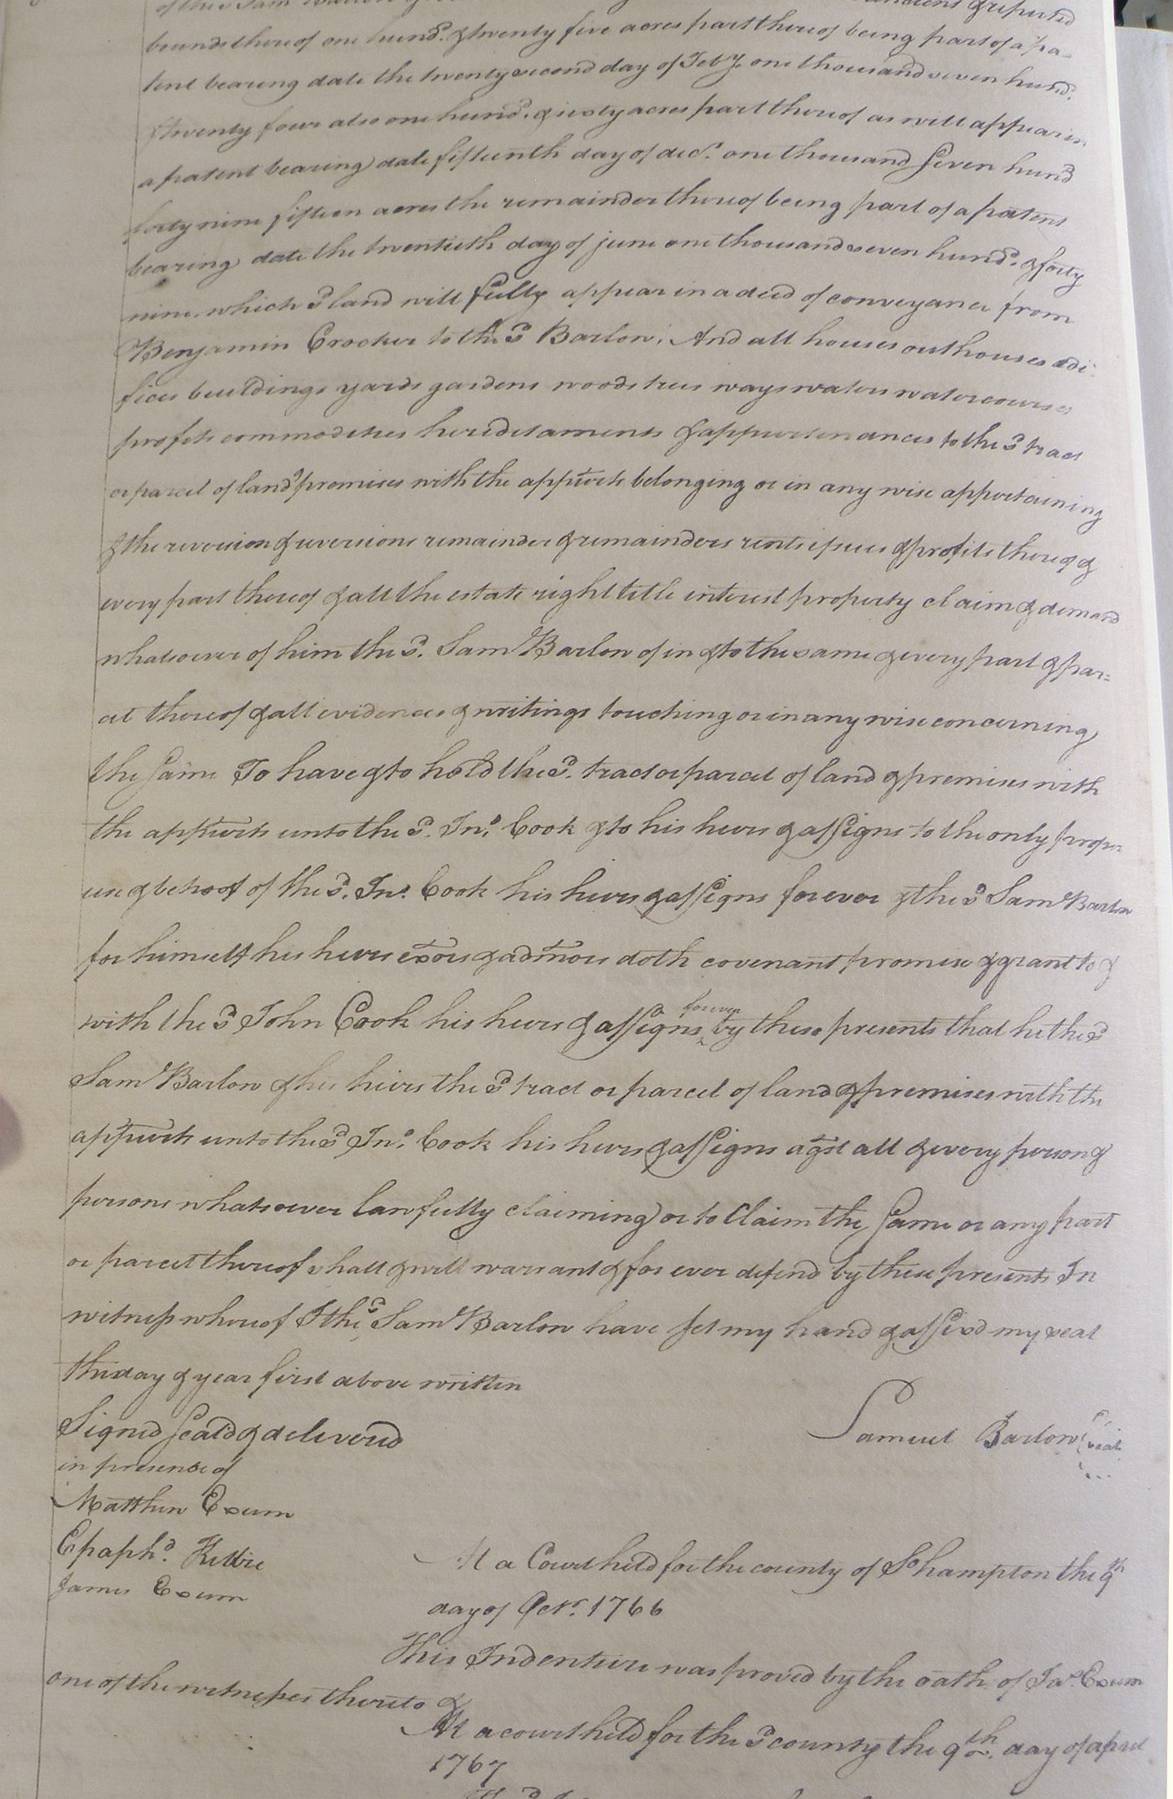 of the sd Sam Barlow
bounds thereof one hund.d & twenty five acres part thereof being part of a pa-
tent bearing date the twenty second day of Feby one thousand seven hund.d
& twenty four also one hund.d & sixty acres part thereof as will appear in
a patent bearing date fifteenth day of decr. one thousand Seven hund
forty nine fifteen acres the remainder thereof being part of a patent
bearing date the twentieth day of june one thousand seven hund.d & forty
nine which sd land will fully appear in a deed of conveyance from
Benjamin Crocker to the sd Barlow. And all houses outhouses edi-
fices buildings yards gardens woods trees ways waters watercourses
profits commodities hereditaments & appurtenances to the sd tract
or parcel of land & premises with the appurts belonging or in any wise appertaining
& the reversion & reversions remainder & remainders rents issues & profits thereof &
every part thereof & all the estate right title interest property claim & demand
whatsoever of him the sd. Sam Barlow of in & to the same & every part & par=
cel thereof & all evidences & writings touching or in any wise concerning
the Same To have & to hold the sd. tract or parcel of land & premises with
the appurts unto the sd. Jno. Cook & to his heirs & assigns to the only proper
use & behoof of the sd. Jno. Cook his heirs & assigns forever & the sd Sam Barlow
for himself his heirs exors & admors doth covenant promise & grant to &
with the sd John Cook his heirs & assigns forever by these presents that he the sd
Sam Barlow & his heirs the sd tract or parcel of land & premises with the
appurts unto the sd Jno. Cook his heirs & assigns agst all & every person &
persons whatsoever lawfully claiming or to Claim the Same or any part
or parcel thereof shall & will warrant & for ever defend by these presents In
witness whereof I the sd Sam Barlow have set my hand & affixd my seal
the day & year first above written
Signed Seald & deliverd
Samuel Barlow (seal
in presence of
Matthew Exum
Epaphd.
James Exum
At a Court held for the county of So.hampton the 9th
day of Octr. 1766
This Indenture was proved by the oath of Jas. Exum
one of the witnesses thereto &
At a court held for the sd county the 9th day of april
1767